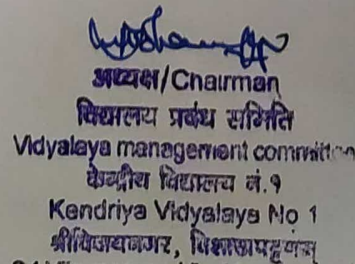 अध्यक्ष/Chairman
विद्यालय प्रबंध समिति
Vidyalaya management committee
केन्द्रीय विद्यालय नं.१
Kendriya Vidyalaya No 1
श्रीविजयनगर, विशाखापट्टणम्